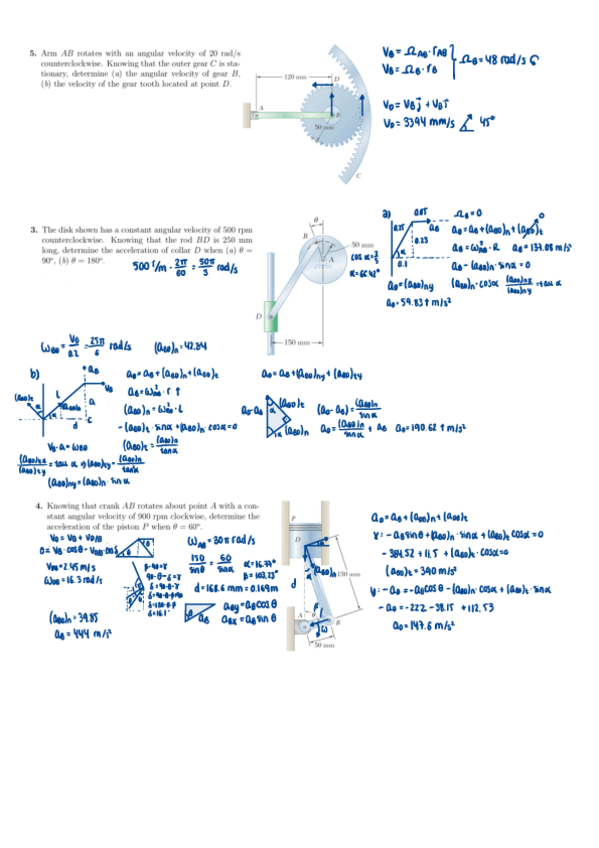 5. Arm AB rotates with an angular velocity of 20 rad/s
counterclockwise. Knowing that the outer gear C is sta-
tionary, determine (a) the angular velocity of gear B,
(b) the velocity of the gear tooth located at point D.
120 mm
D
A
B
50 mm
C
V_B = Ω_AB · r_AB
V_B = Ω_B · r_B
Ω_B = 48 rad/s
V_D = V_B j + V_B i
V_D = 3394 mm/s 45°
3. The disk shown has a constant angular velocity of 500 rpm
counterclockwise. Knowing that the rod BD is 250 mm
long, determine the acceleration of collar D when (a) θ =
90°, (b) θ = 180°.
500 r/m · 2π/60 = 50π/3 rad/s
θ
B
50 mm
A
D
150 mm
a)
0.25
0.1
a_B
Ω_B = 0
a_D = a_B + (a_BD)n + (a_BD)t
a_B = ω²_AB · R a_B = 137.08 m/s²
a_B - (a_BD)n · sin α = 0
a_D = (a_BD)ny
(a_BD)n · cos α
(a_BD)nx/(a_BD)ny = tan α
a_D = 59.83 ↑ m/s²
ω_BD = V_B/0.2 = 25π/6 rad/s
(a_BD)n = 42.84
b)
a_D
V_B
L
a
d
c
a_D = a_B + (a_BD)n + (a_BD)t
a_B = ω²_AB · r ↑
(a_BD)n = ω²_BD · L
- (a_BD)t · sin α + (a_BD)n · cos α = 0
(a_BD)t = (a_BD)n/tan α
V_B · a = ω_BD
(a_BD)ny = (a_BD)n · sin α
a_D = a_B + (a_BD)ny + (a_BD)ty
a_D - a_B
(a_BD)t
α
(a_BD)n
(a_D - a_B) = (a_BD)n/sin α
a_D = (a_BD)n/sin α + a_B a_D = 190.62 ↑ m/s²
4. Knowing that crank AB rotates about point A with a con-
stant angular velocity of 900 rpm clockwise, determine the
acceleration of the piston P when θ = 60°.
V_D = V_B + V_D/B
ω_AB = 30π rad/s
150/sin θ = 50/sin α
α = 16.77°
β = 103.23°
d = 168.6 mm = 0.169 m
ω_BD = 16.3 rad/s
(a_BD)n = 39.85
a_B = 444 m/s²
a_By = a_B cos θ
a_Bx = a_B sin θ
a_B
P
D
(a_BD)n
150 mm
d
β
A
θ
B
ω
50 mm
a_D = a_B + (a_BD)n + (a_BD)t
x: - a_B sin θ + (a_BD)n · sin α + (a_BD)t cos α = 0
- 384.52 + 11.5 + (a_BD)t · cos α = 0
(a_BD)t = 390 m/s²
y: - a_D = - a_B cos θ - (a_BD)n · cos α + (a_BD)t · sin α
- a_D = - 222 - 38.15 + 112.53
a_D = 147.6 m/s²